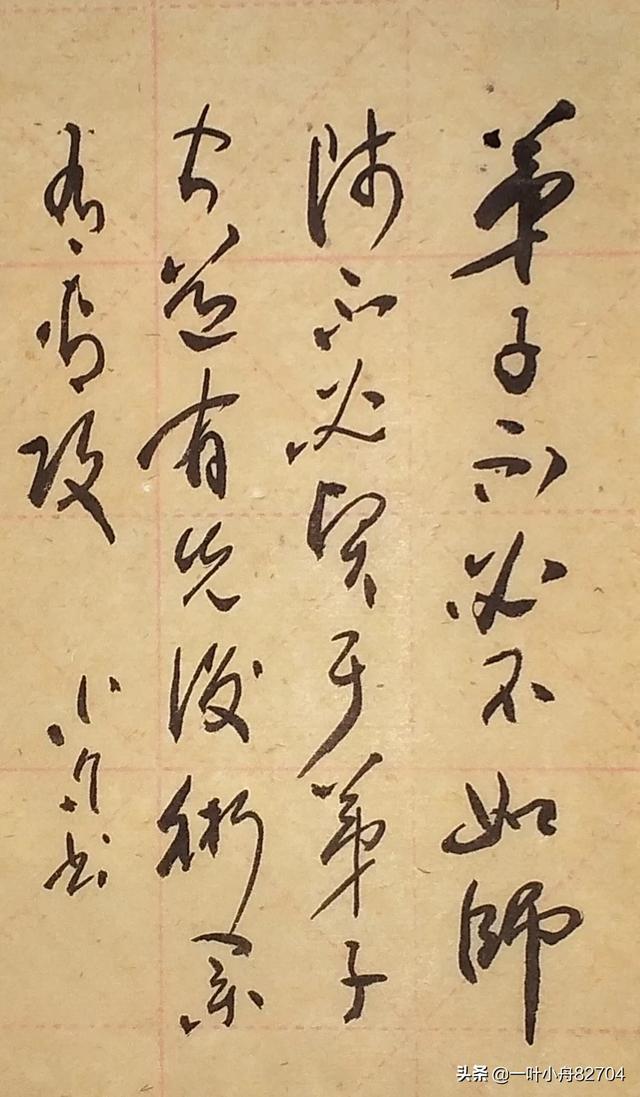 弟子不必不如師
師不必賢于弟子
聞道有先後術業
有專攻
小舟书
头条 @一叶小舟82704